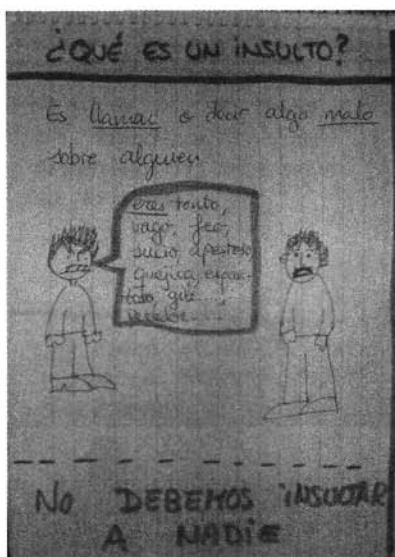 ¿QUÉ ES UN INSULTO?
Es llamar o decir algo malo
sobre alguien
eres tonto,
vago, feo,
sucio, apestoso,
quejica,
NO DEBEMOS INSULTAR
A NADIE